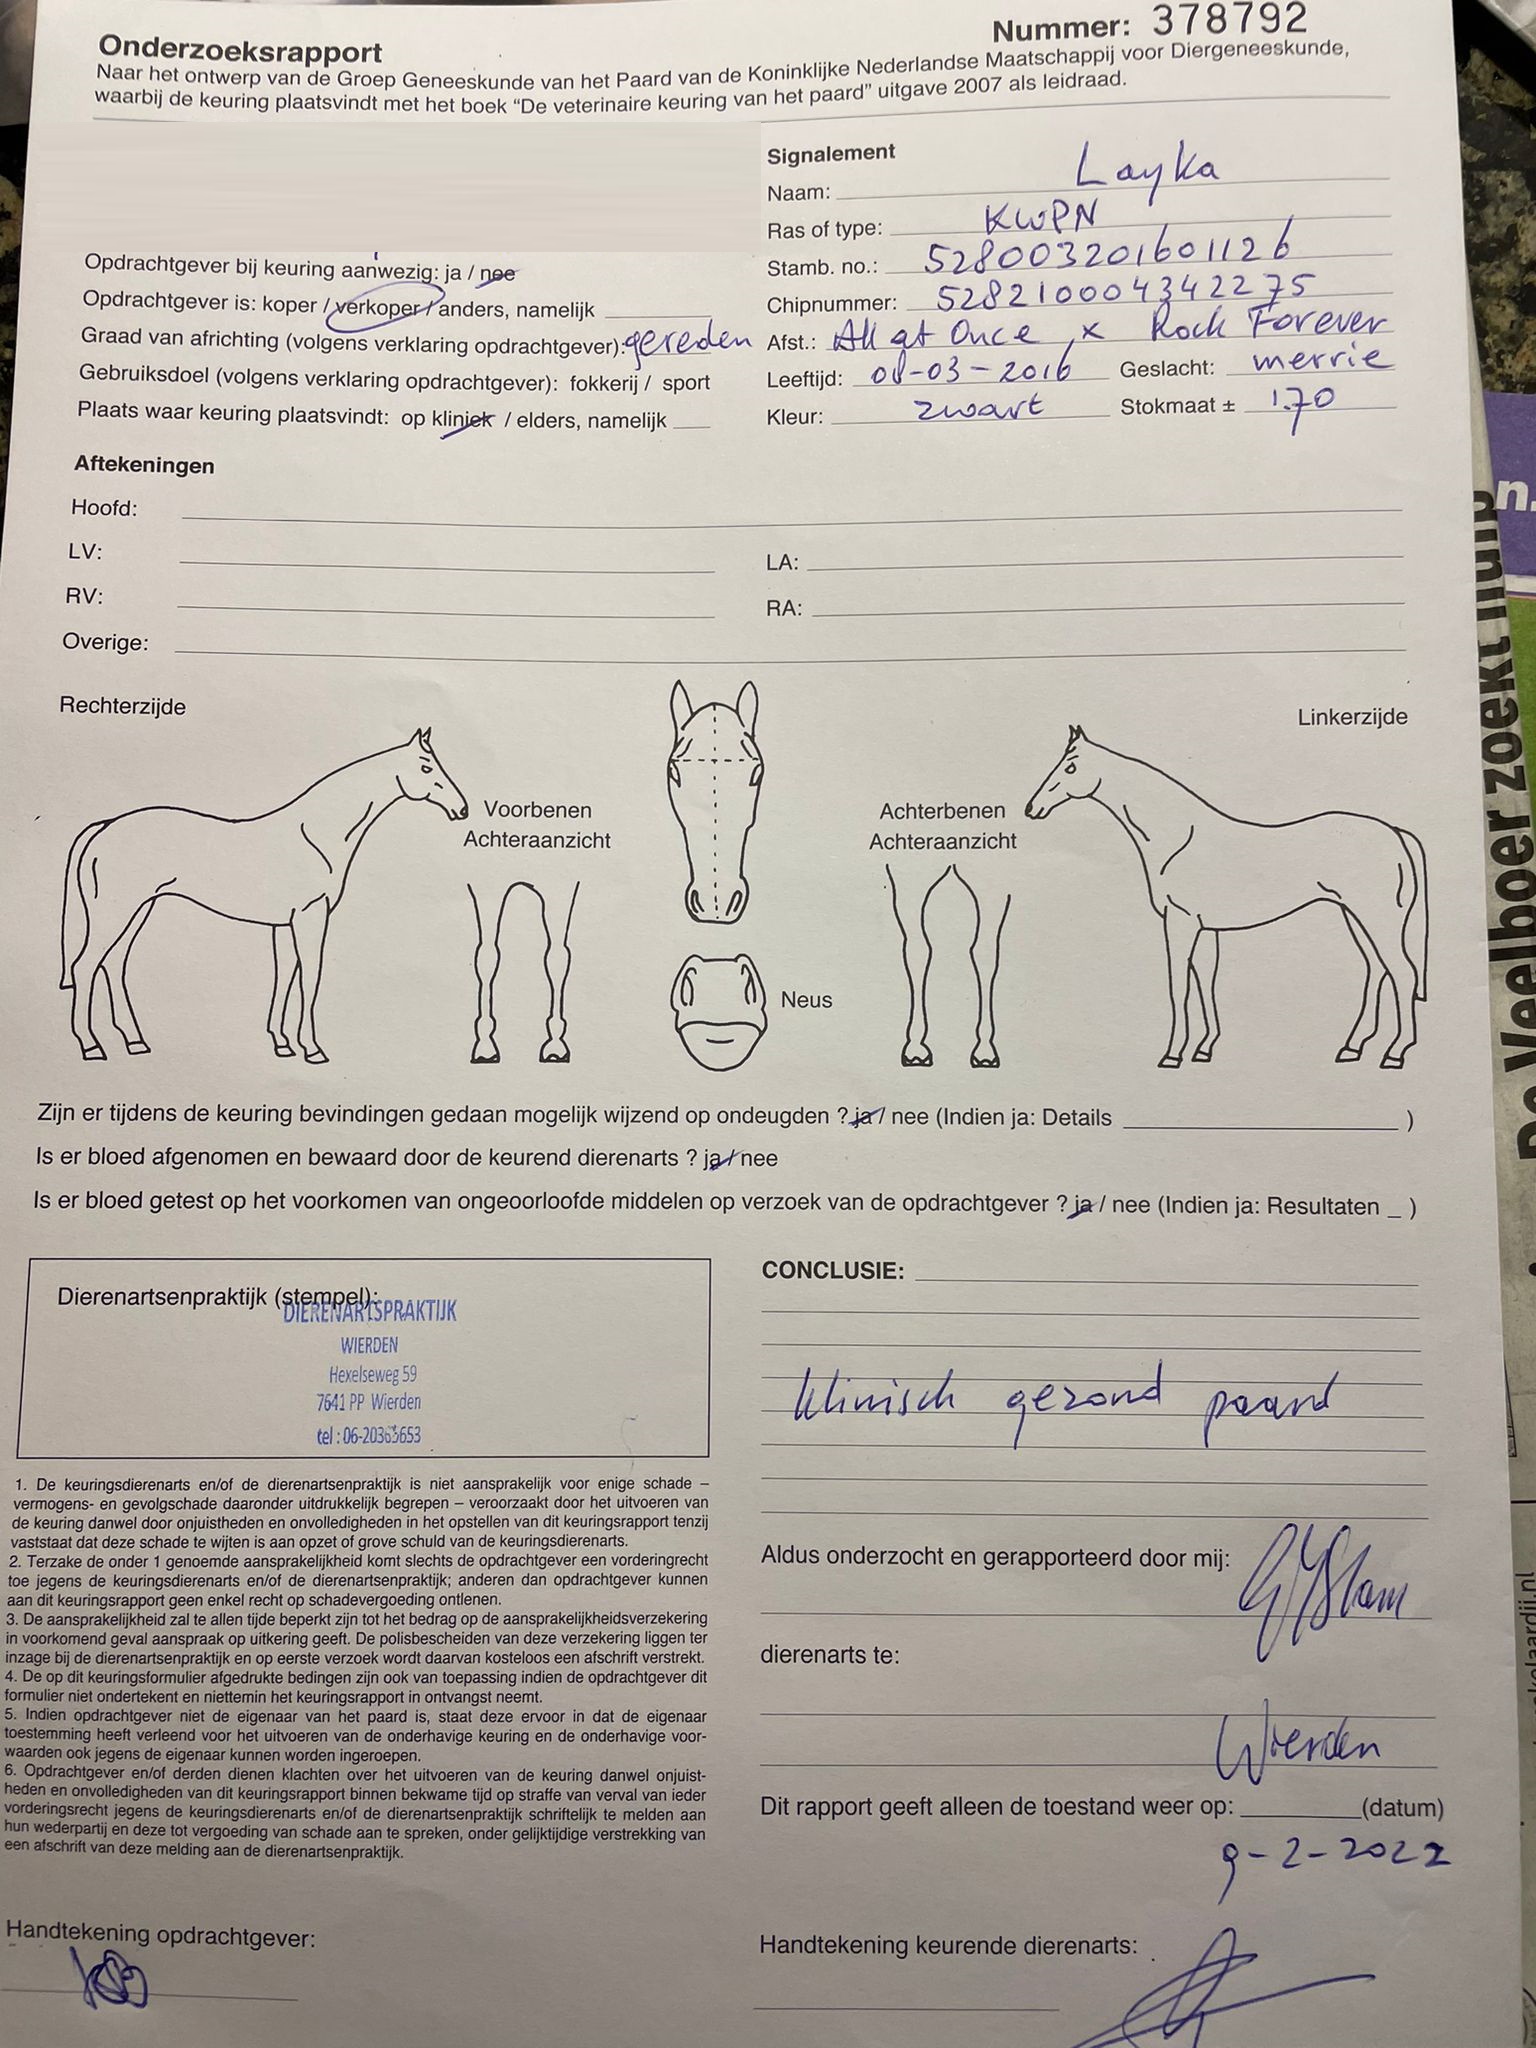 Nummer: 378792
Onderzoeksrapport
Naar het ontwerp van de Groep Geneeskunde van het Paard van de Koninklijke Nederlandse Maatschappij voor Diergeneeskunde,
waarbij de keuring plaatsvindt met het boek “De veterinaire keuring van het paard” uitgave 2007 als leidraad.
Opdrachtgever bij keuring aanwezig: ja / nee
Opdrachtgever is: koper / verkoper / anders, namelijk
Graad van africhting (volgens verklaring opdrachtgever): gereden
Gebruiksdoel (volgens verklaring opdrachtgever): fokkerij / sport
Plaats waar keuring plaatsvindt: op kliniek / elders, namelijk
Signalement
Naam: Layka
Ras of type: KWPN
Stamb. no.: 528003201601126
Chipnummer: 528210004342275
Afst.: All at Once x Rock Forever
Leeftijd: 08-03-2016 Geslacht: merrie
Kleur: zwart Stokmaat ± 1.70
Aftekeningen
Hoofd:
LV: LA:
RV: RA:
Overige:
Rechterzijde Linkerzijde
Voorbenen Achterbenen
Achteraanzicht Achteraanzicht
Neus
Zijn er tijdens de keuring bevindingen gedaan mogelijk wijzend op ondeugden ? ja / nee (Indien ja: Details )
Is er bloed afgenomen en bewaard door de keurend dierenarts ? ja / nee
Is er bloed getest op het voorkomen van ongeoorloofde middelen op verzoek van de opdrachtgever ? ja / nee (Indien ja: Resultaten _ )
Dierenartsenpraktijk (stempel):
DIERENARTSPRAKTIJK
WIERDEN
Hexelseweg 59
7641 PP Wierden
tel : 06-20365653
1. De keuringsdierenarts en/of de dierenartsenpraktijk is niet aansprakelijk voor enige schade –
vermogens- en gevolgschade daaronder uitdrukkelijk begrepen – veroorzaakt door het uitvoeren van
de keuring danwel door onjuistheden en onvolledigheden in het opstellen van dit keuringsrapport tenzij
vaststaat dat deze schade te wijten is aan opzet of grove schuld van de keuringsdierenarts.
2. Terzake de onder 1 genoemde aansprakelijkheid komt slechts de opdrachtgever een vorderingrecht
toe jegens de keuringsdierenarts en/of de dierenartsenpraktijk; anderen dan opdrachtgever kunnen
aan dit keuringsrapport geen enkel recht op schadevergoeding ontlenen.
3. De aansprakelijkheid zal te allen tijde beperkt zijn tot het bedrag op de aansprakelijkheidsverzekering
in voorkomend geval aanspraak op uitkering geeft. De polisbescheiden van deze verzekering liggen ter
inzage bij de dierenartsenpraktijk en op eerste verzoek wordt daarvan kosteloos een afschrift verstrekt.
4. De op dit keuringsformulier afgedrukte bedingen zijn ook van toepassing indien de opdrachtgever dit
formulier niet ondertekent en niettemin het keuringsrapport in ontvangst neemt.
5. Indien opdrachtgever niet de eigenaar van het paard is, staat deze ervoor in dat de eigenaar
toestemming heeft verleend voor het uitvoeren van de onderhavige keuring en de onderhavige voor-
waarden ook jegens de eigenaar kunnen worden ingeroepen.
6. Opdrachtgever en/of derden dienen klachten over het uitvoeren van de keuring danwel onjuist-
heden en onvolledigheden van dit keuringsrapport binnen bekwame tijd op straffe van verval van ieder
vorderingsrecht jegens de keuringsdierenarts en/of de dierenartsenpraktijk schriftelijk te melden aan
hun wederpartij en deze tot vergoeding van schade aan te spreken, onder gelijktijdige verstrekking van
een afschrift van deze melding aan de dierenartsenpraktijk.
Handtekening opdrachtgever:
CONCLUSIE:
klinisch gezond paard
Aldus onderzocht en gerapporteerd door mij:
dierenarts te:
Wierden
Dit rapport geeft alleen de toestand weer op: (datum)
9-2-2022
Handtekening keurende dierenarts:
n.
De Veelboer zoekt hulp